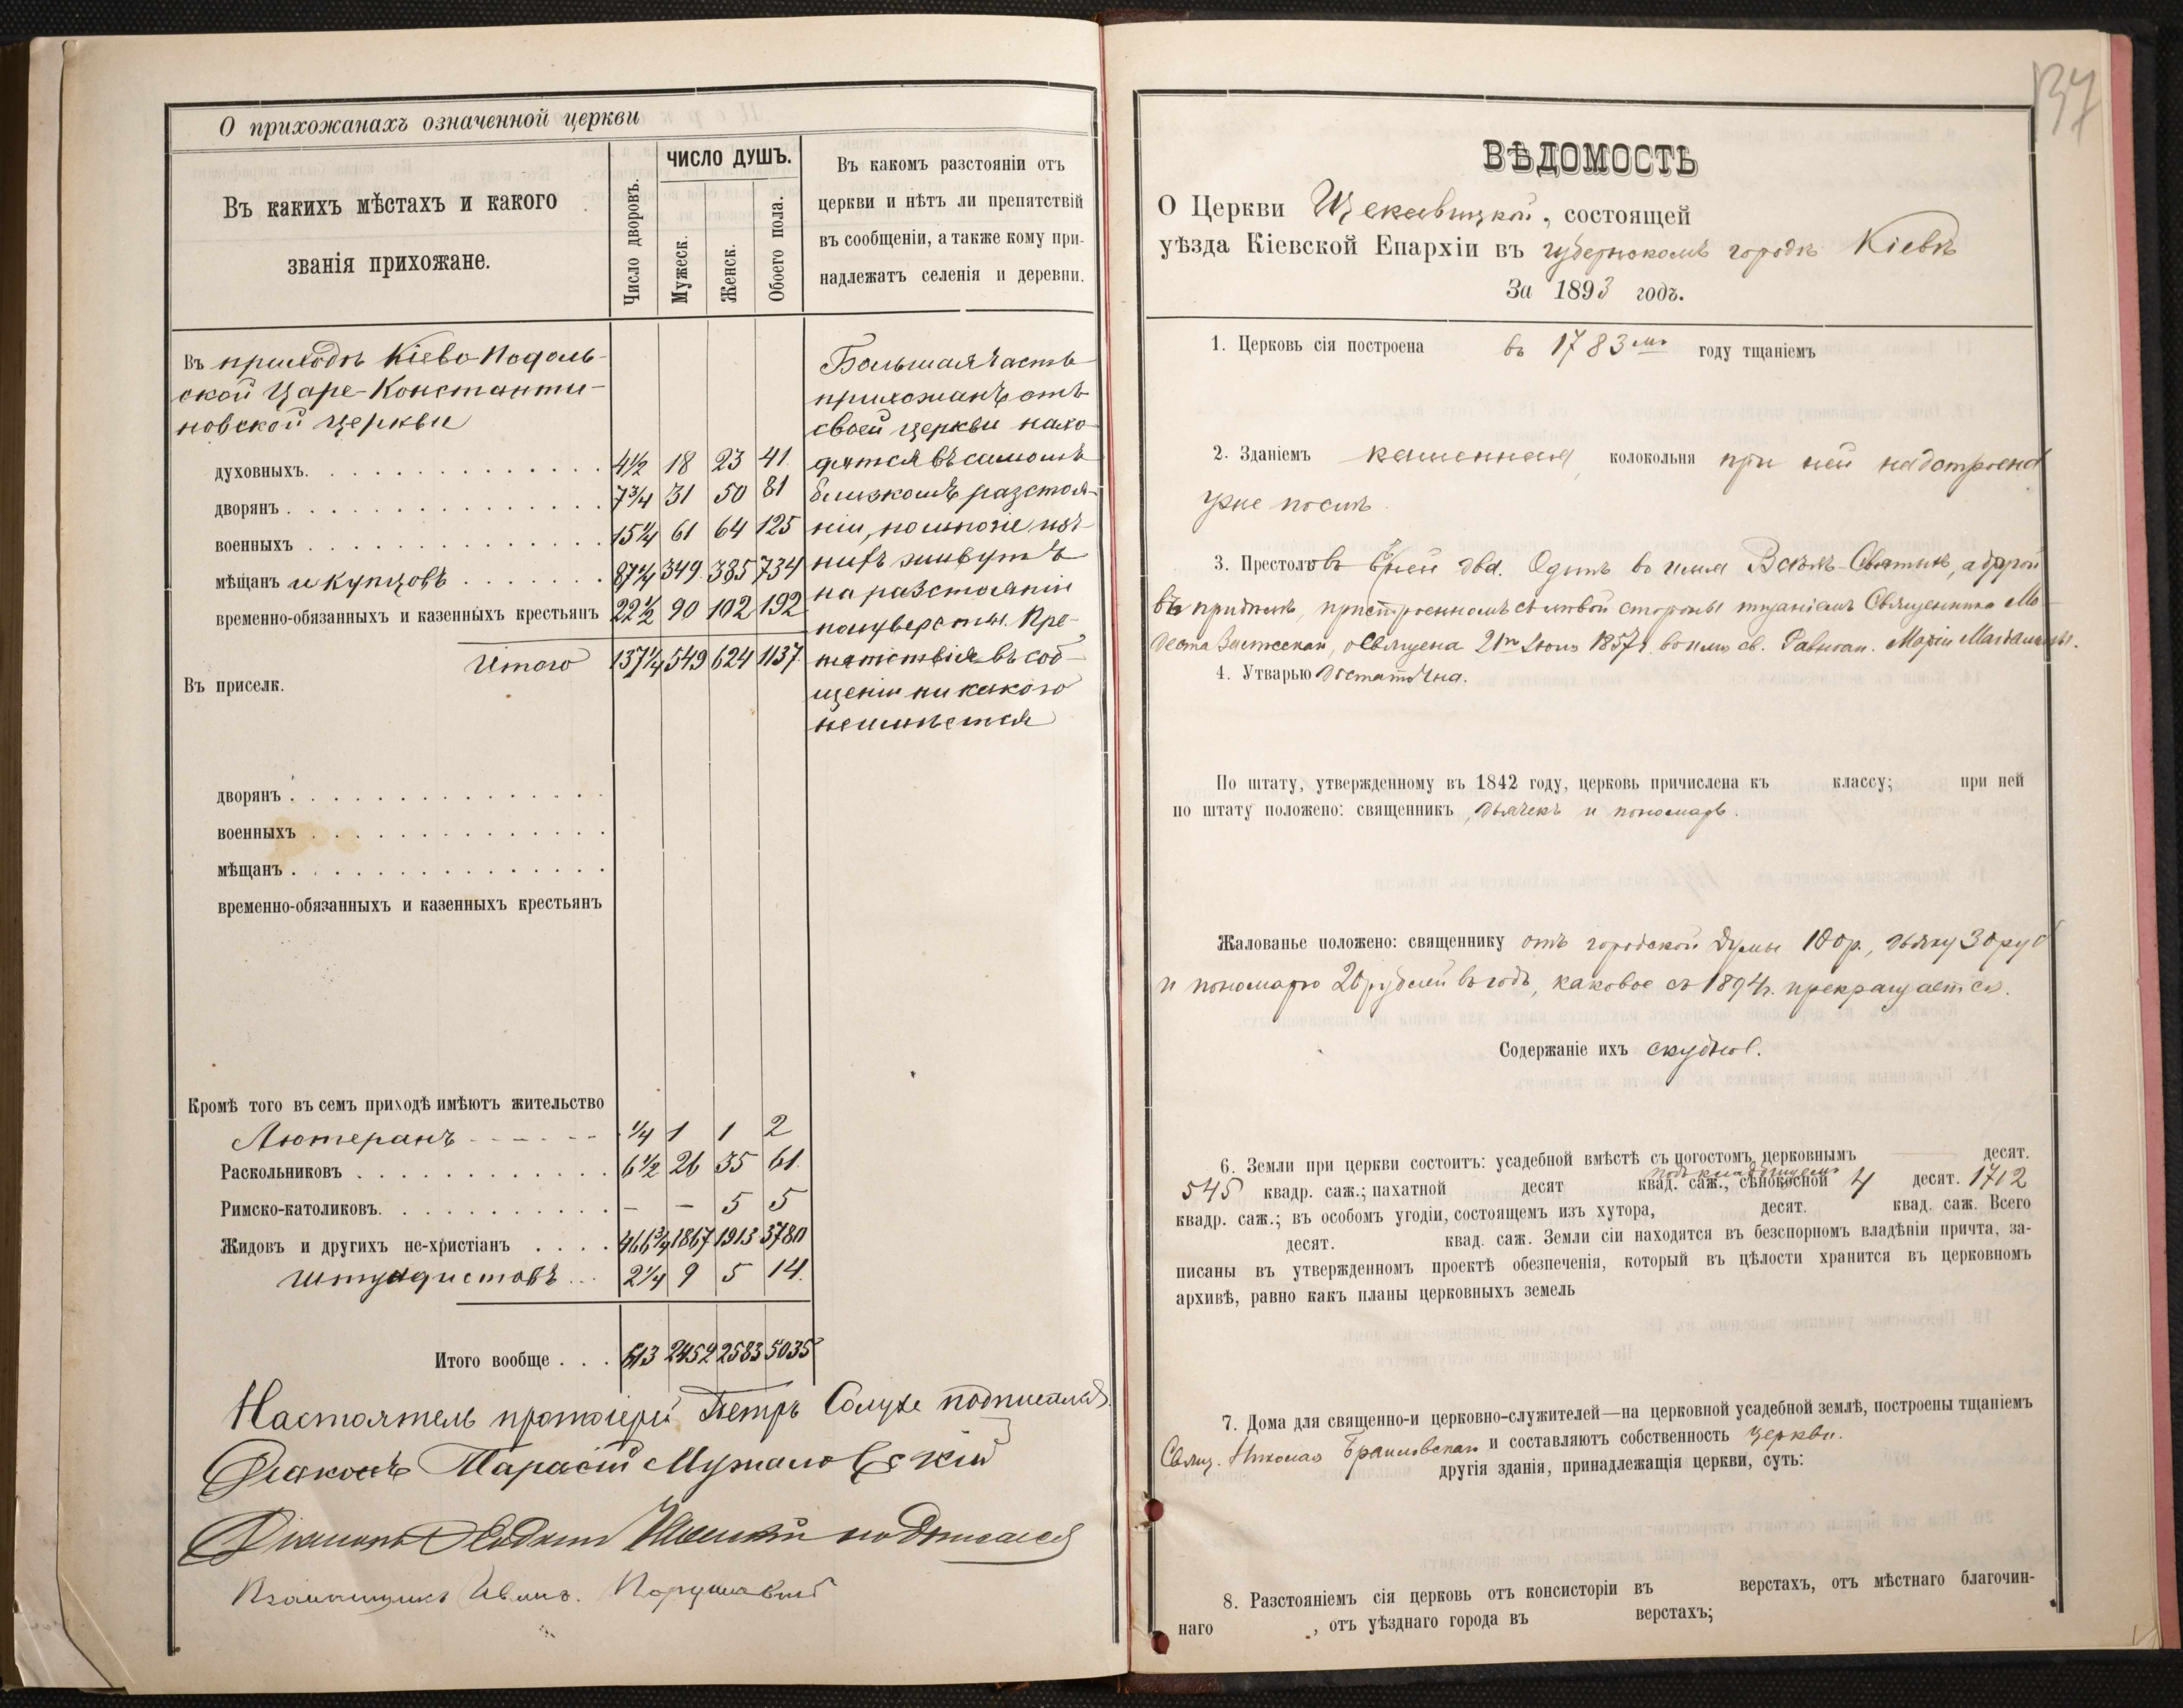 О прихожанахъ означенной церкви
Въ какихъ мѣстахъ и какого
званія прихожане.
Число дворовъ.
ЧИСЛО ДУШЪ.
Мужеск.
Женск.
Обоего пола.
Въ какомъ разстояніи отъ
церкви и нѣтъ ли препятствій
въ сообщеніи, а также кому при-
надлежатъ селенія и деревни.
Въ приходѣ Кіево-Подоль-
ской Царе-Константи-
новской церкви
духовныхъ. 4½ 18 23 41
дворянъ 7¾ 31 50 81
военныхъ 15¼ 61 64 125
мѣщанъ и купцовъ 87¼ 349 385 734
временно-обязанныхъ и казенныхъ крестьянъ 22½ 90 102 192
Итого 137¼ 549 624 1137
Большая часть
прихожанъ отъ
своей церкви нахо-
дятся въ самомъ
близкомъ разстоя-
ніи, но многіе изъ
нихъ живутъ
на разстояніи
полуверсты. Пре-
пятствія въ соб-
щеніи никакого
не имѣется
Въ приселк.
дворянъ
военныхъ
мѣщанъ
временно-обязанныхъ и казенныхъ крестьянъ
Кромѣ того въ семъ приходѣ имѣютъ жительство
Лютеранъ ¼ 1 1 2
Раскольниковъ 6½ 26 35 61
Римско-католиковъ. — — 5 5
Жидовъ и другихъ не-христіанъ 466¾ 1867 1913 3780
Штундистовъ 2¼ 9 5 14
Итого вообще 613 2452 2583 5035
Настоятель протоіерей Петръ Солуха подписался.
Діаконъ Тарасій
Діаконъ подписался
Псаломщикъ
137
ВѢДОМОСТЬ
О Церкви Щекавицкой, состоящей
уѣзда Кіевской Епархіи въ губернскомъ городѣ Кіевѣ
За 1893 годъ.
1. Церковь сія построена въ 1783мъ году тщаніемъ
2. Зданіемъ каменная, колокольня при ней надстроена
уже послѣ.
3. Престоловъ въ ней два. Одинъ во имя Всѣхъ Святыхъ, а другой
въ придѣлѣ, пристроенномъ съ лѣвой стороны тщаніемъ Священника Мо-
деста освящена 21го Іюля 1857 г. во имя св. Равноап. Маріи Магдалины.
4. Утварью достаточна.
По штату, утвержденному въ 1842 году, церковь причислена къ классу; при ней
по штату положено: священникъ, дьячекъ и пономарь.
Жалованье положено: священнику отъ городской Думы 100 р., дьяку 30 руб
и пономарю 20 рублей въ годъ, каковое съ 1894 г. прекращается.
Содержаніе ихъ скудное.
6. Земли при церкви состоитъ: усадебной вмѣстѣ съ погостомъ церковнымъ десят.
подъ кладбищемъ
545 квадр. саж.; пахатной десят квад. саж., сѣнокосной 4 десят. 1702
квадр. саж.; въ особомъ угодіи, состоящемъ изъ хутора, десят. квад. саж. Всего
десят. квад. саж. Земли сіи находятся въ безспорномъ владѣніи причта, за-
писаны въ утвержденномъ проектѣ обезпеченія, который въ цѣлости хранится въ церковномъ
архивѣ, равно какъ планы церковныхъ земель
7. Дома для священно-и церковно-служителей—на церковной усадебной землѣ, построены тщаніемъ
Свящ. Николая Браиловскаго и составляютъ собственность церкви.
другія зданія, принадлежащія церкви, суть:
8. Разстояніемъ сія церковь отъ консисторіи въ верстахъ, отъ мѣстнаго благочин-
наго , отъ уѣзднаго города въ верстахъ;